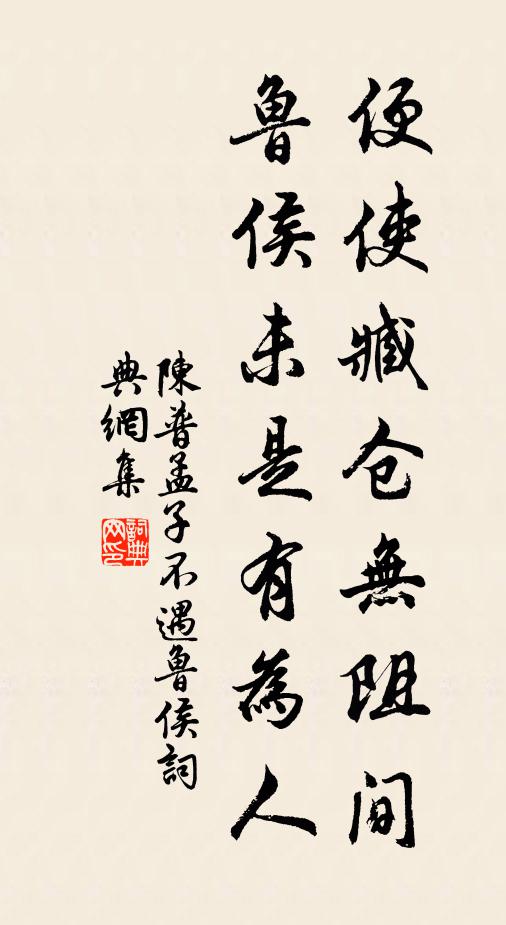 便使臧仓無阻间
鲁侯未是有為人
陳普孟子不遇鲁侯詞
典網集
詞典网印